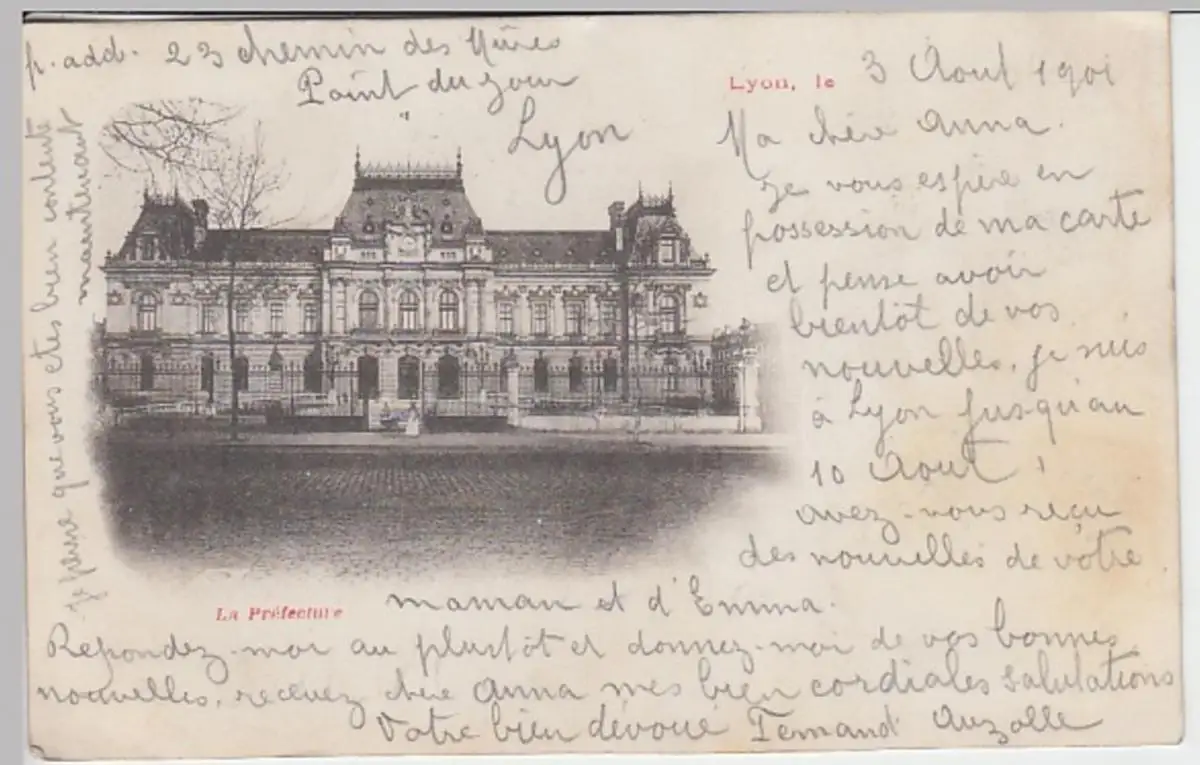 p. add. 23 chemin des Mûres
Point du jour
Lyon
Lyon, le 3 Aout 1901
Ma chère Anna.
Je vous espère en
possession de ma carte
et pense avoir
bientôt de vos
nouvelles, je suis
à Lyon jusqu'au
10 Aout,
avez-vous reçu
des nouvelles de votre
maman et d'Emma.
La Préfecture
Repondez-moi au plustôt et donnez-moi de vos bonnes
nouvelles, recevez chère Anna mes bien cordiales salutations
Votre bien dévoué Fernand Auzolle
Je pense que vous etes bien contente
maintenant